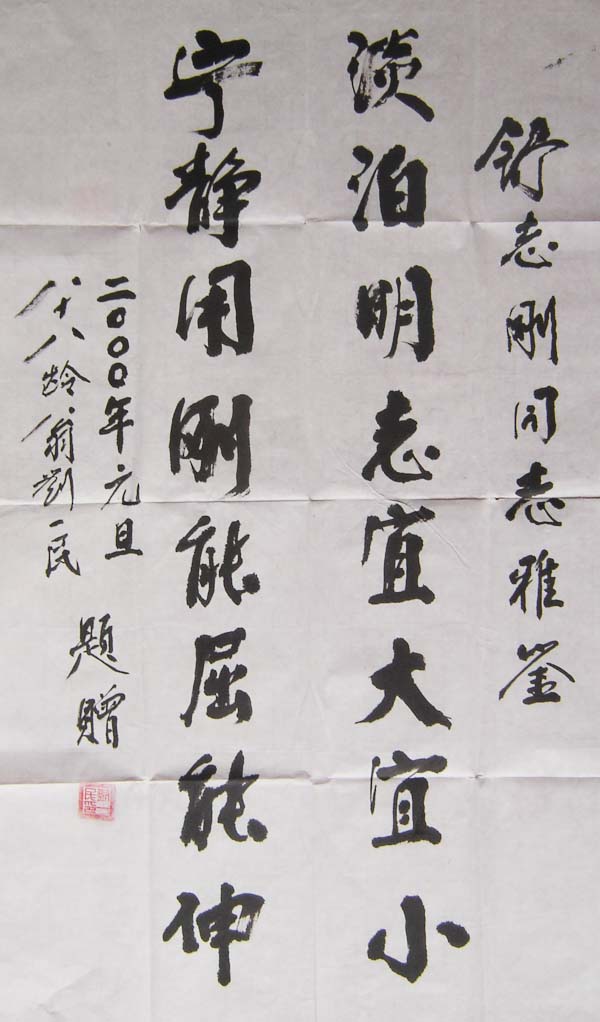 舒志刚同志雅鉴
淡泊明志宜大宜小
宁静用刚能屈能伸
二〇〇〇年元旦
八十八龄翁刘一民
题赠
刘一民玺